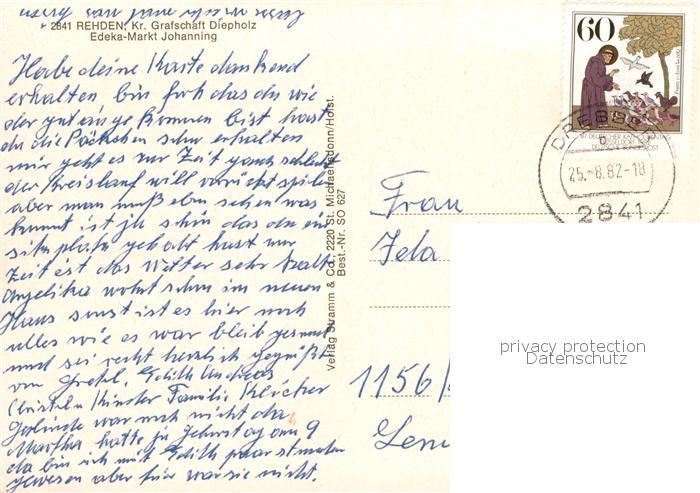 2841 REHDEN, Kr. Grafschaft Diepholz
Edeka-Markt Johanning
Habe deine Karte dankend
erhalten bin froh das du wie
der gut angekommen bist hast
du die Päckchen schon erhalten
mir geht es zur Zeit ganz schlecht
der Kreislauf will verrückt spielen
aber man muß eben sehen was
kommt ist ja schön das du ein
sitzplatz gehabt hast zur
Zeit ist das Wetter sehr kalt
Angelika wohnt schon im neuen
Haus sonst ist es hier noch
alles wie es war bleib gesund
und sei recht herzlich gegrüßt
von Gretel, Edith Andreas
Christeln Kinder Familie
Gerlinde war noch nicht da
Martha hatte ja Geburstag am 9
da bin ich mit Edith paar stunden
gewesen aber für war sie nicht.
Verlag Stramm & Co., 2220 St. Michaelisdonn/Holst.
Best.-Nr. SO 627
60
DEUTSCHE BUNDESPOST
25.-8.82-18
2841
Frau
Jda
1156/
privacy protection
Datenschutz